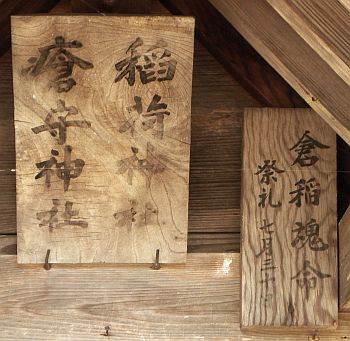 稲荷神社
瘡守神社
倉稲魂命
祭礼 七月三